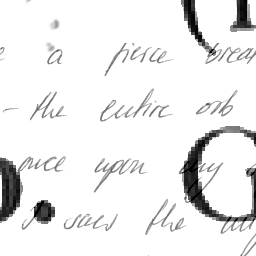 a pierce
- the entire orb
once upon my
I saw the